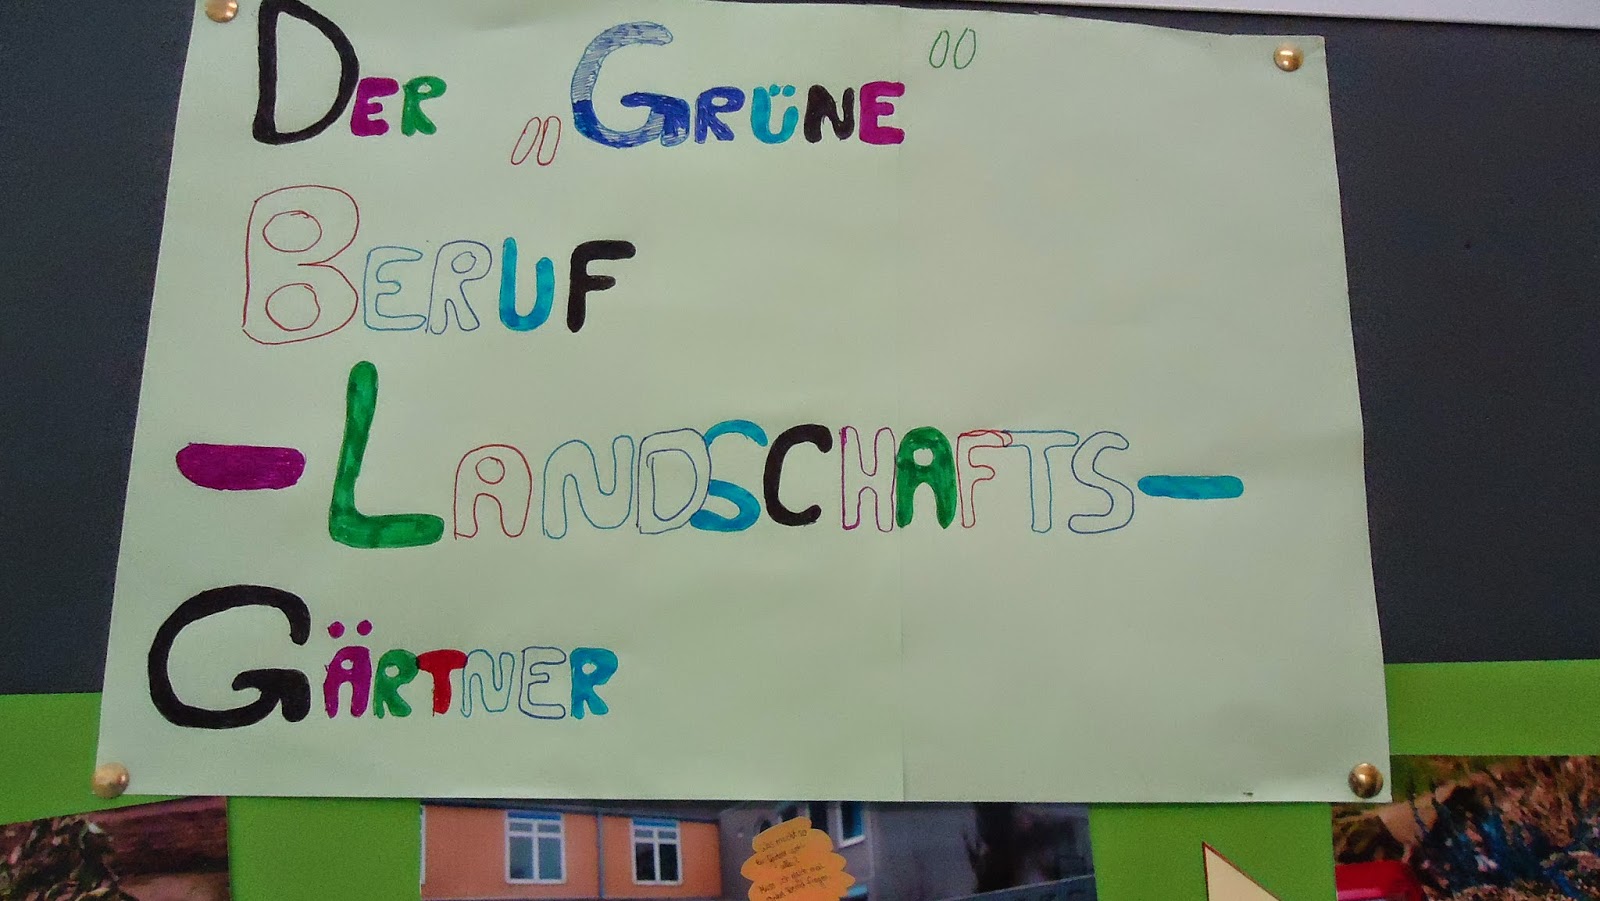 DER „GRÜNE"
BERUF
-LANDSCHAFTS-
GÄRTNER